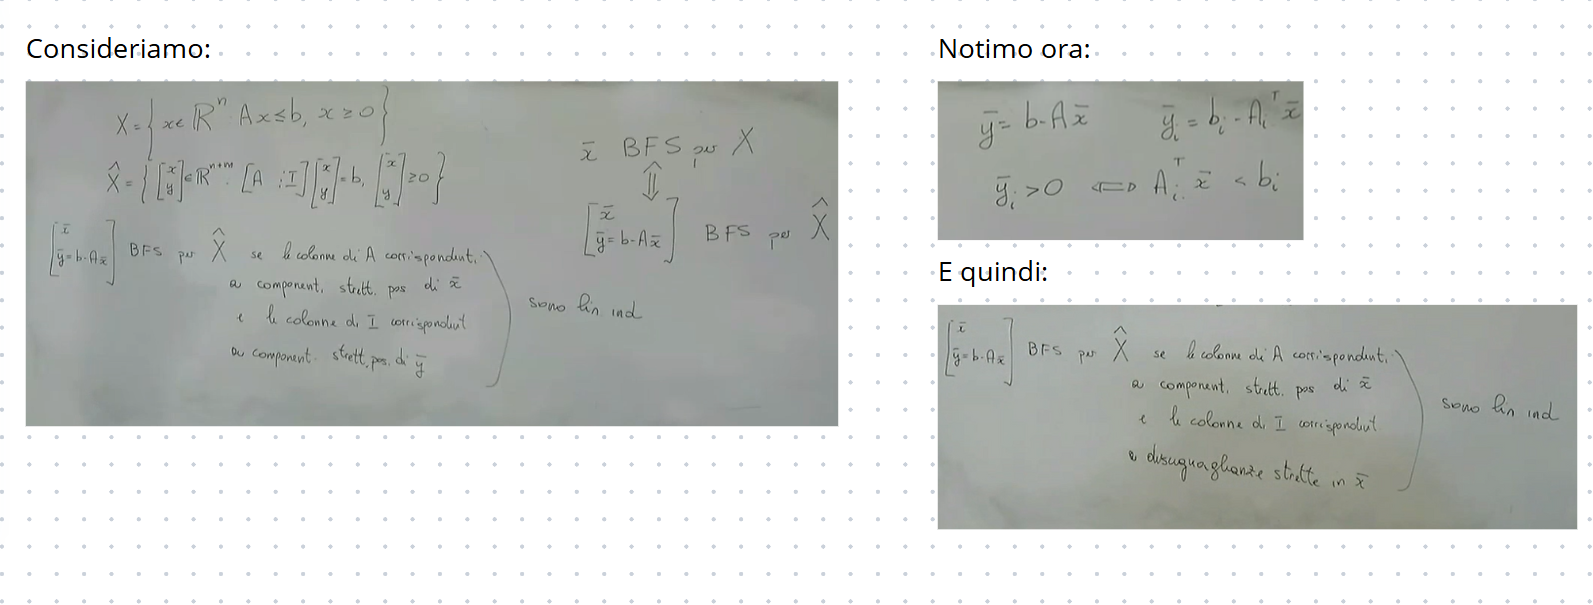 Consideriamo:
X = { x ∈ ℝⁿ: Ax ≤ b, x ≥ 0 }
X̂ = { [x y] ∈ ℝⁿ⁺ᵐ: [A ⋮ I] [x y] = b, [x y] ≥ 0 }
x̄ BFS per X
⇕
[x̄ ȳ = b - Ax̄] BFS per X̂
[x̄ ȳ = b - Ax̄] BFS per X̂ se le colonne di A corrispondenti
a component. strett. pos di x̄
e le colonne di I corrispondent
a component. strett. pos. di ȳ
sono lin ind
Notimo ora:
ȳ = b - Ax̄ ȳᵢ = bᵢ - Aᵢᵀ x̄
ȳᵢ > 0 ⇔ Aᵢᵀ x̄ < bᵢ
E quindi:
[x̄ ȳ = b - Ax̄] BFS per X̂ se le colonne di A corrispondenti
a component. strett. pos di x̄
e le colonne di I corrispondent
a disuguaglianze strette in x̄
sono lin ind